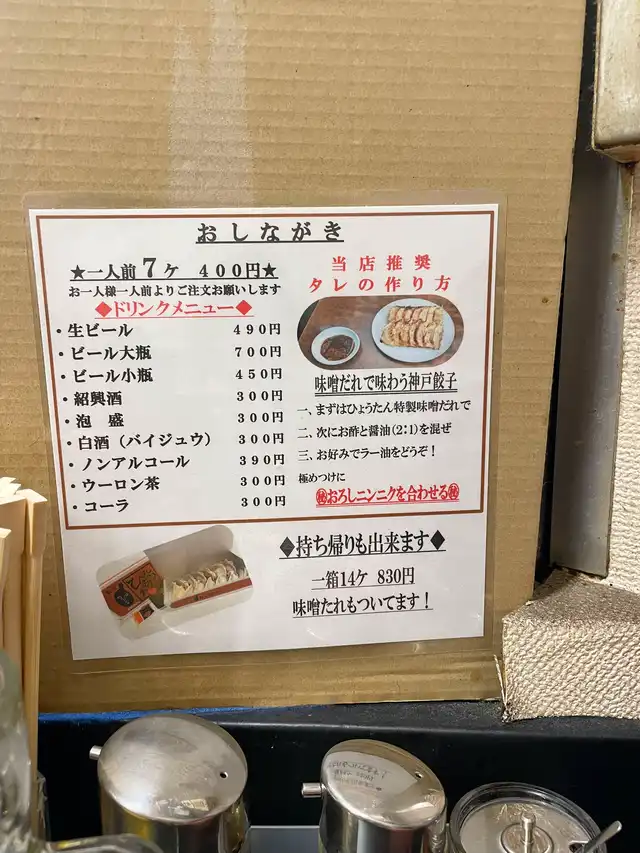 おしながき
★一人前７ケ ４００円★
お一人様一人前よりご注文お願いします
◆ドリンクメニュー◆
・生ビール ４９０円
・ビール大瓶 ７００円
・ビール小瓶 ４５０円
・紹興酒 ３００円
・泡 盛 ３００円
・白酒（バイジュウ） ３００円
・ノンアルコール ３９０円
・ウーロン茶 ３００円
・コーラ ３００円
当店推奨
タレの作り方
味噌だれで味わう神戸餃子
一、まずはひょうたん特製味噌だれで
二、次にお酢と醤油(2:1)を混ぜ
三、お好みでラー油をどうぞ！
極めつけに
㊙おろしニンニクを合わせる㊙
◆持ち帰りも出来ます◆
一箱14ケ 830円
味噌たれもついてます！